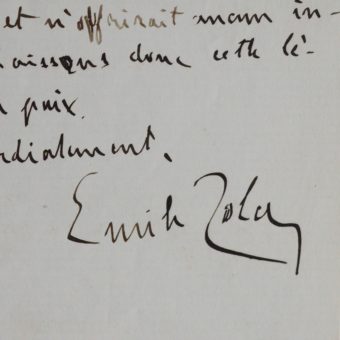 et n'offrirait aucun in-
laissons donc cette lé-
n paix.
rdialement,
Emile Zola